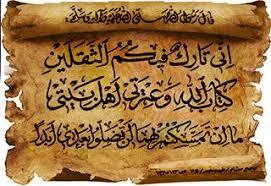 قال رسول الله صلى الله عليه وآله وسلم:
إِنّي تارِكٌ فيكُمُ الثَّقَلَينِ
كِتابَ اللهِ وَعِترَتي أَهلَ بَيتي
ما إِن تَمَسَّكتُم بِهِما لَن تَضِلّوا بَعدي أَبَداً